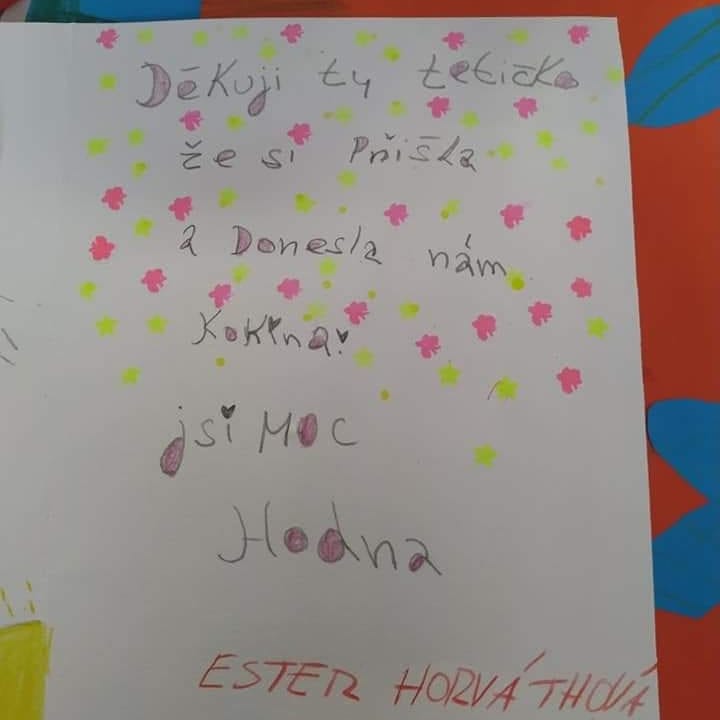 Děkuji ty tetičko
že si Přišla
a Donesla nám
Kokina!
jsi moc
Hodna
ESTER HORVÁTHOVÁ